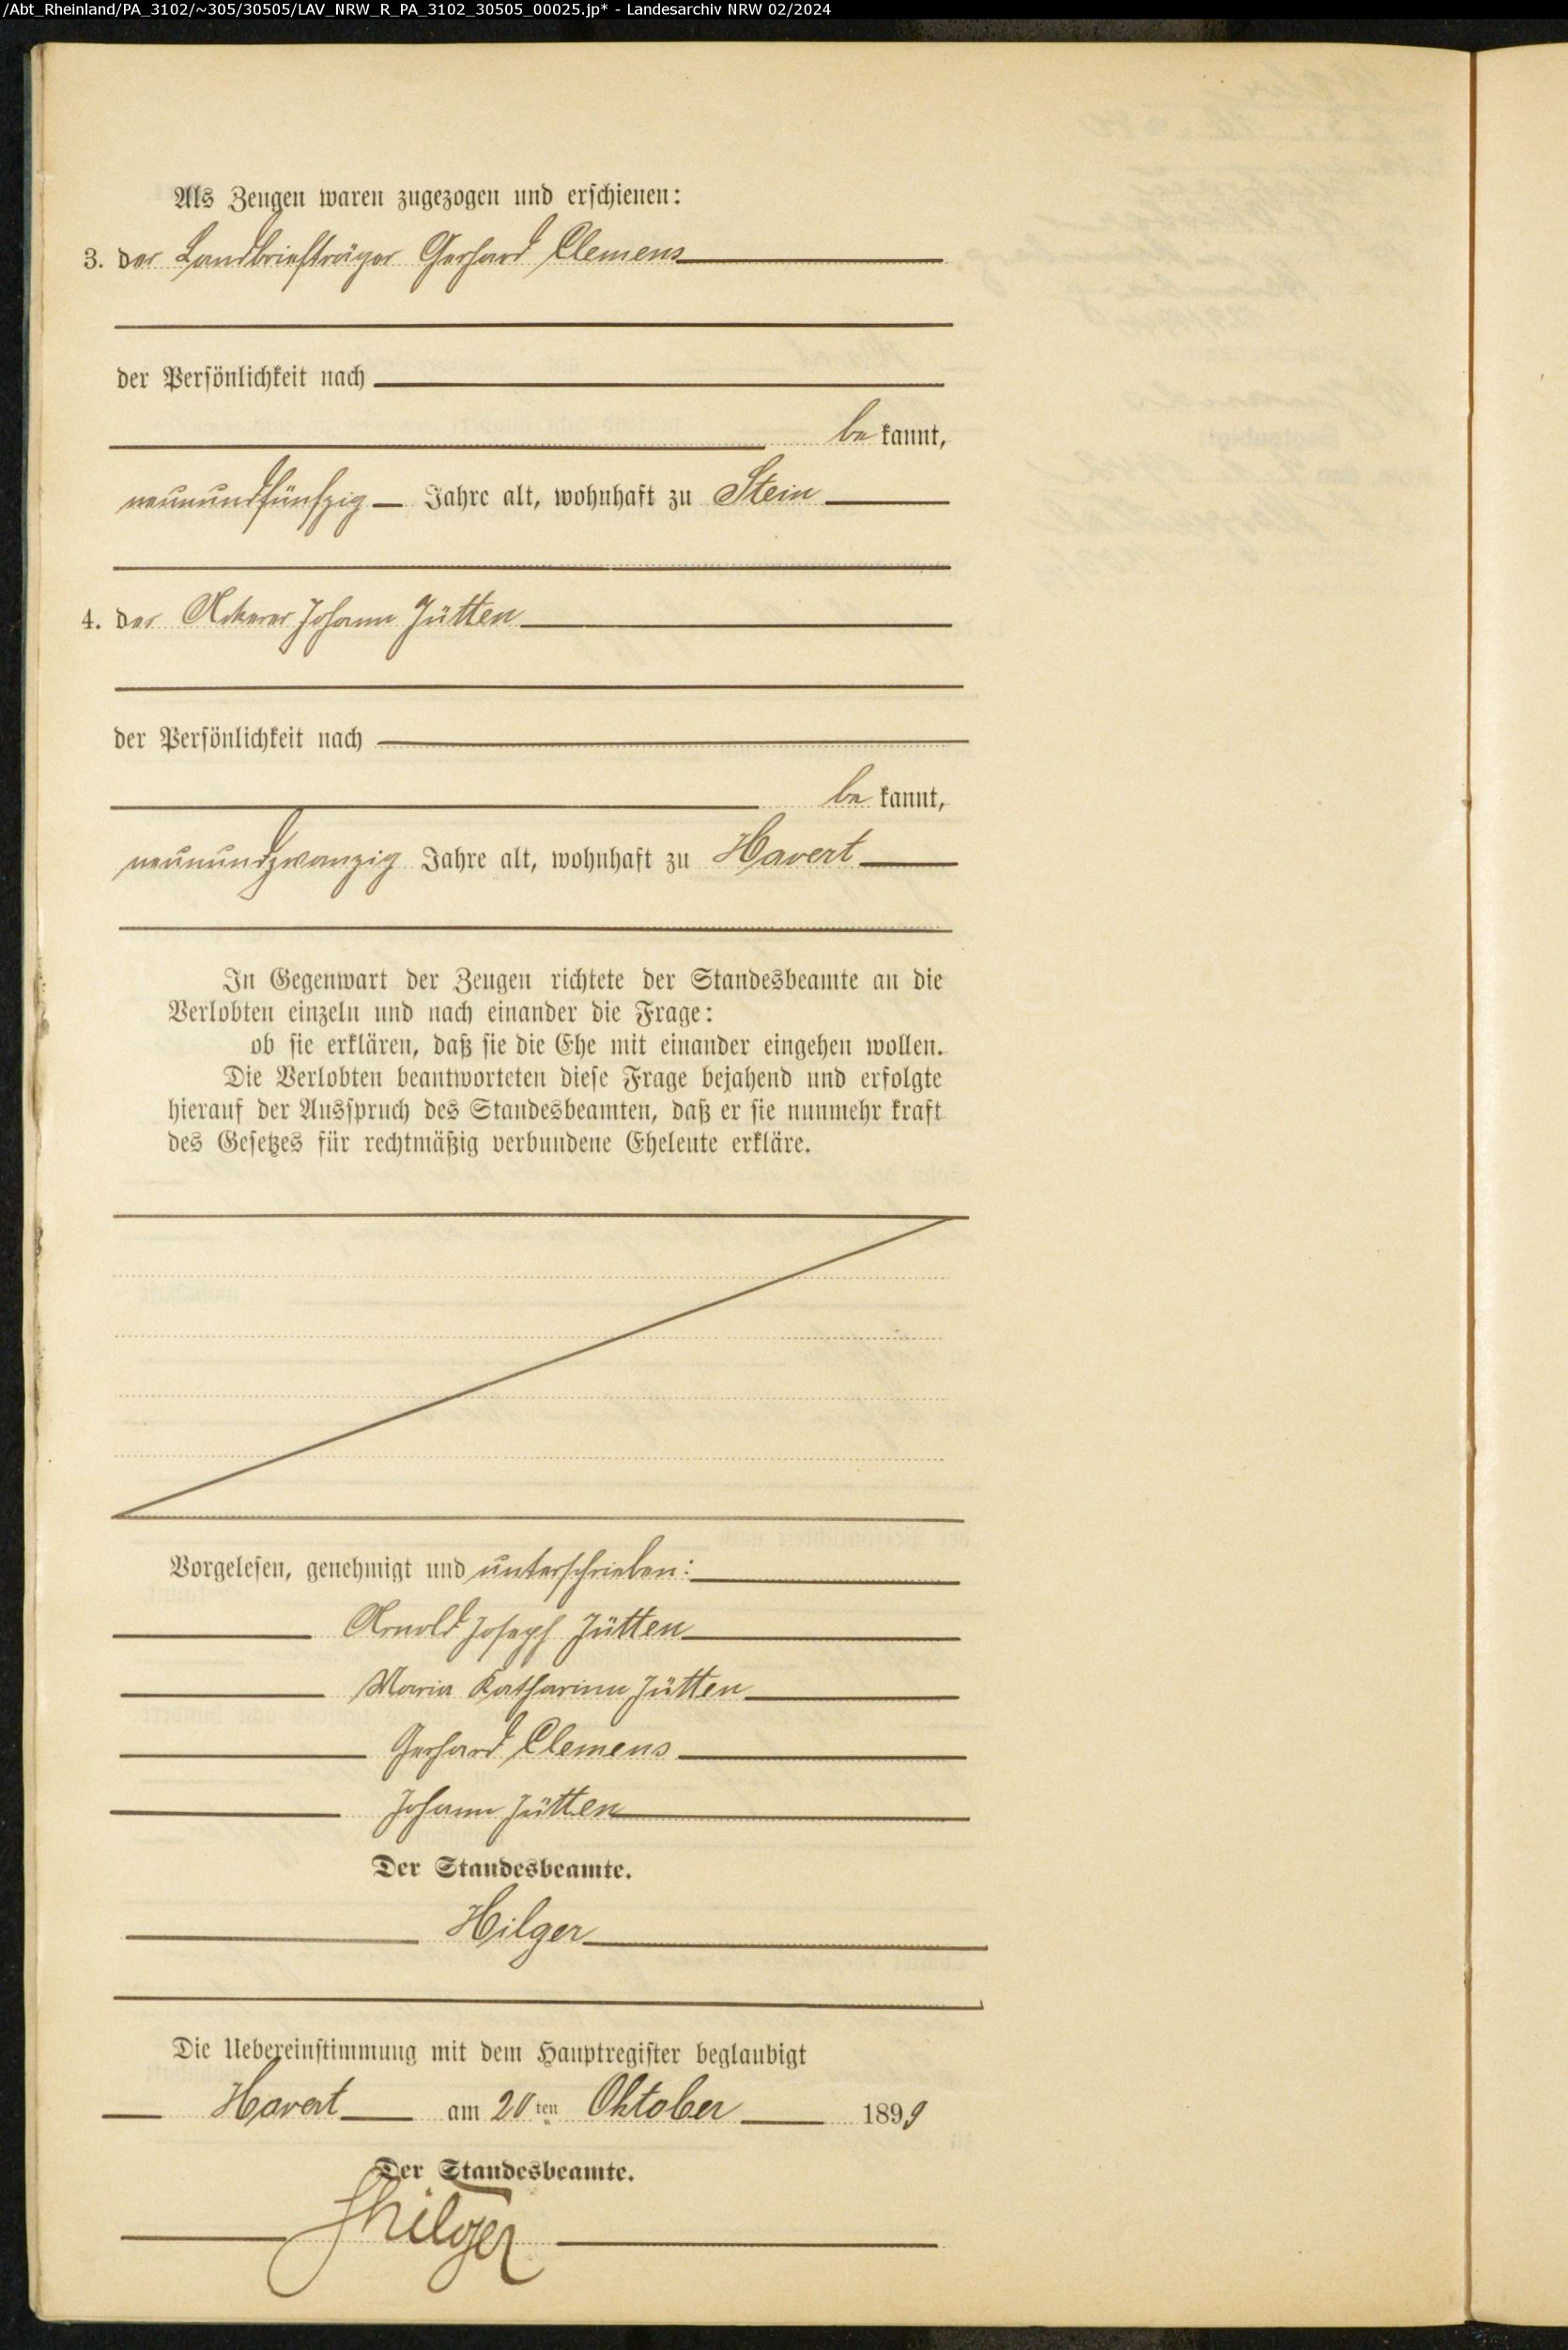 /Abt_Rheinland/PA_3102/~305/30505/LAV_NRW_R_PA_3102_30505_00025.jp* - Landesarchiv NRW 02/2024
Als Zeugen waren zugezogen und erschienen:
3. der Landbriefträger Gerhard Clemens
der Persönlichkeit nach
be kannt,
neunundfünfzig Jahre alt, wohnhaft zu Stein
4. der Ackerer Johann Jütten
der Persönlichkeit nach
be kannt,
neunundzwanzig Jahre alt, wohnhaft zu Havert
In Gegenwart der Zeugen richtete der Standesbeamte an die
Verlobten einzeln und nach einander die Frage:
ob sie erklären, daß sie die Ehe mit einander eingehen wollen.
Die Verlobten beantworteten diese Frage bejahend und erfolgte
hierauf der Ausspruch des Standesbeamten, daß er sie nunmehr kraft
des Gesetzes für rechtmäßig verbundene Eheleute erkläre.
Vorgelesen, genehmigt und unterschrieben:
Arnold Joseph Jütten
Maria Katharina Jütten
Gerhard Clemens
Johann Jütten
Der Standesbeamte.
Hilger
Die Uebereinstimmung mit dem Hauptregister beglaubigt
Havert am 20ten Oktober 1899
Der Standesbeamte.
Hilger